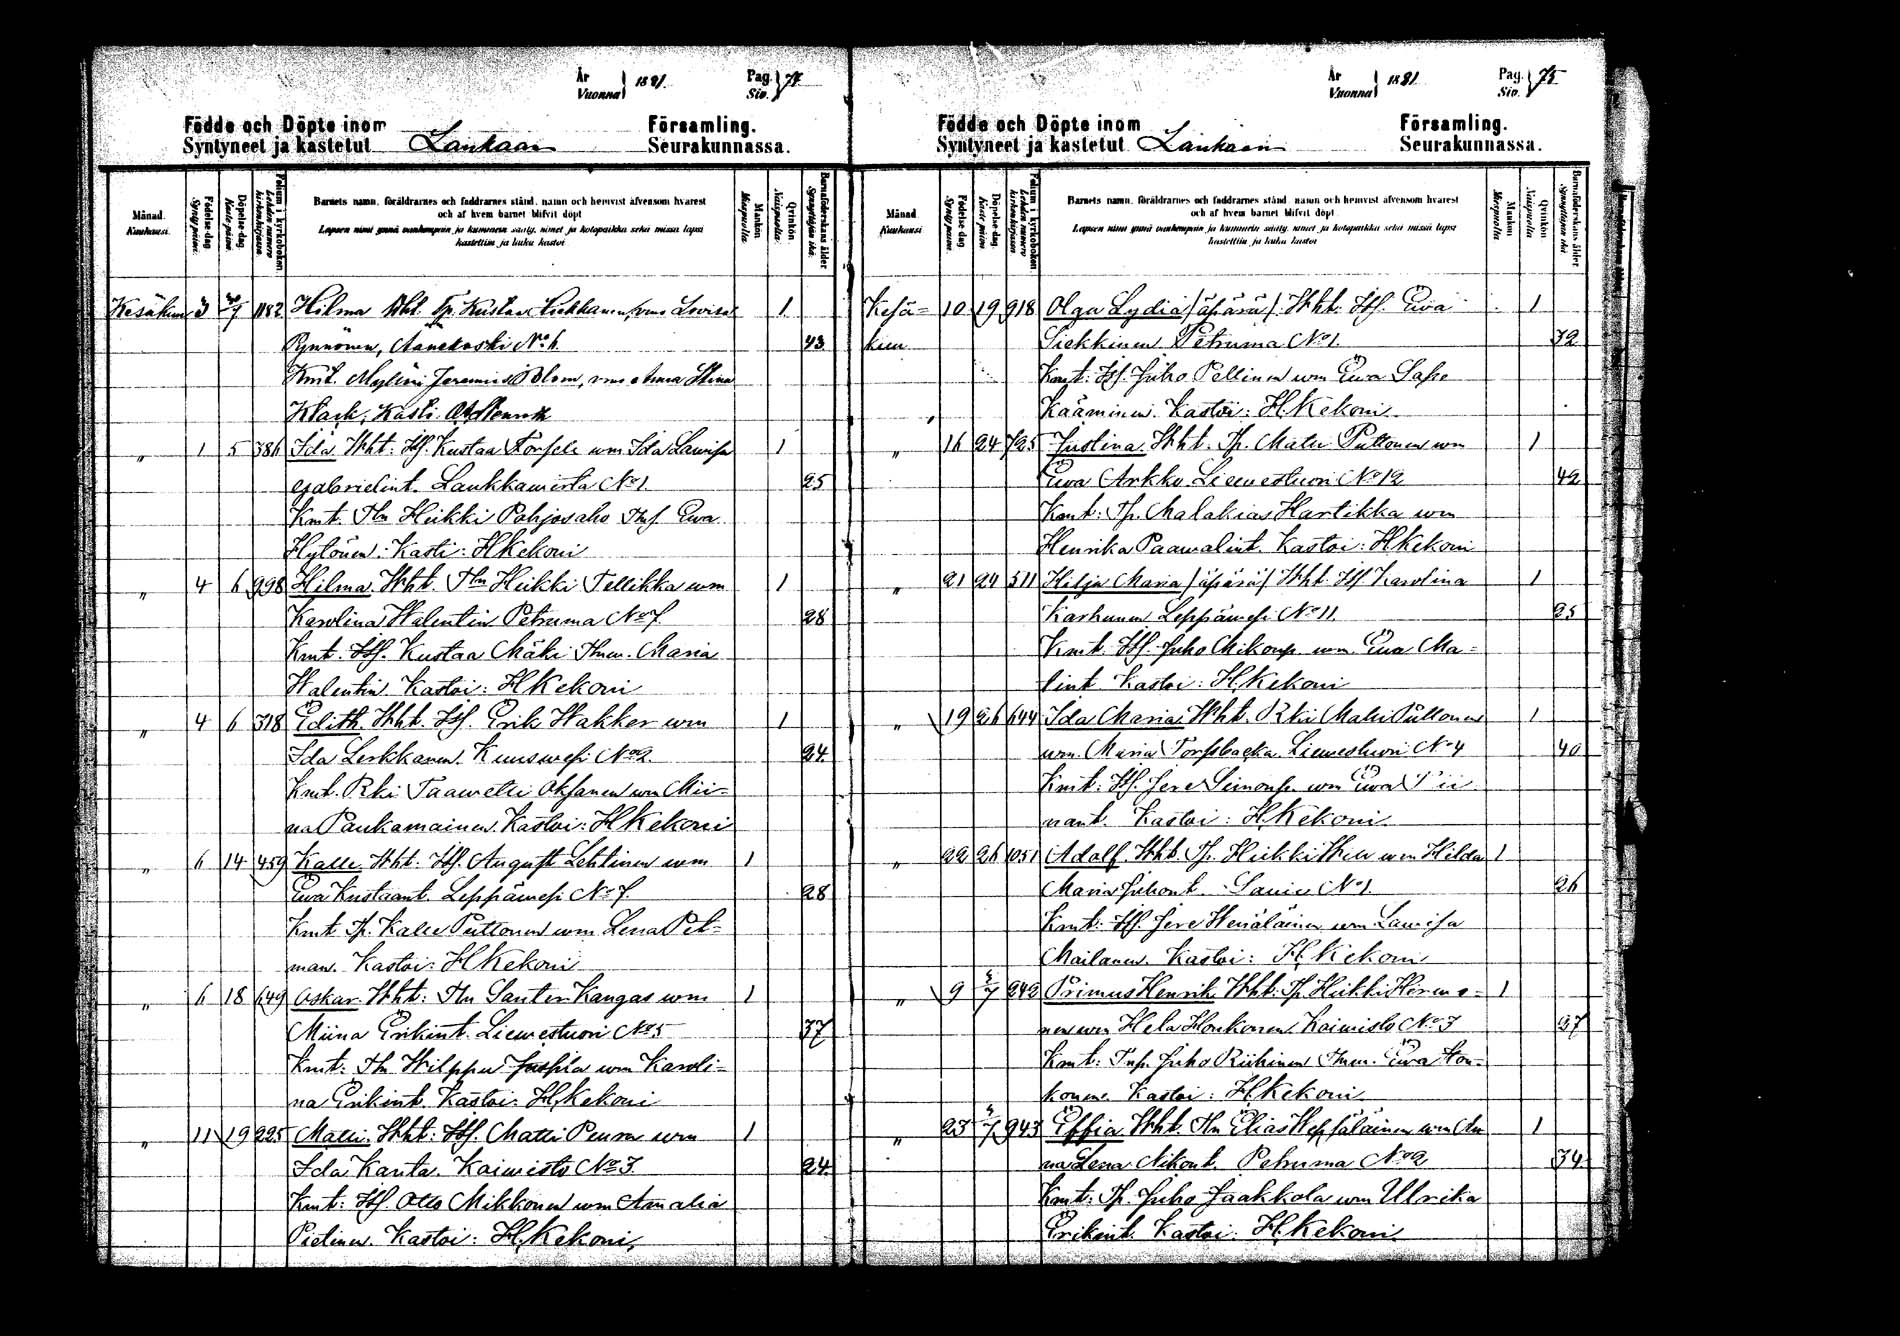 År
Vuonna } 1881.
Pag.
Siv. } 74.
Födde och Döpte inom
Syntyneet ja kastetut Laukaan
Församling.
Seurakunnassa.
Månad.
Kuukausi.
Födelse dag.
Syntypäivä.
Döpelse dag.
Kaste päivä.
Folium i kyrkoboken.
Lehden numero kirkonkirjassa.
Barnets namn, föräldrarnes och faddrarnes stånd, namn och hemvist äfvensom hvarest
och af hvem barnet blifvit döpt
Lapsen nimi ynnä vanhempain ja kummein sääty, nimet ja kotopaikka sekä missä lapsi
kastettiin ja kuka kastoi
Mankön
Miespuolia
Qvinkön
Naispuolia
Barnaföderskans ålder
Synnyttäjän ikä.
Kesäkuu 3 1182 Hilma Wht. Tp. Kustaa Lovisa 1
Rynnönen, Äänekoski No 6. 43
Kmt. Mylläri Jeremias Blom, vmo Anna Stina
Klark. Kasti.
„ 1 5 386 Ida Wht: Itsl. Kustaa wm Ida Lawisa 1
Gabrielint. Laukkawirta No 1. 25
Kmt. Tln Heikki Pohjosaho Thf. Ewa
Hytönen. Kasti: H. Kekoni
„ 4 6 998 Hilma. Wht. Tln Heikki Tellikka wm 1
Karolina Walentin Petruma No 7. 28
Kmt. Itsl. Kustaa Mäki Thw. Maria
Walentin. Kastoi: H. Kekoni
„ 4 6 318 Edith. Wht. Itsl. Erik Wakker wm 1
Ida Lerkkanen. Kuuswesi No 2. 24.
Kmt. Rki Taawetti Oksanen wm Mii-
na Paukamainen. Kastoi: H. Kekoni
„ 6 14 459 Kalle. Wht. Itsl. August Lehtinen wm 1
Ewa Kustaant. Leppäwesi No 7. 28
Kmt. Tp. Kalle Puttonen wm Lena Pet-
man. Kastoi: H. Kekoni
„ 6 18 649 Oskar. Wht: Tln Santeri Kangas wm 1
Miina Erikint. Liewestuori No 5 37
Kmt: Tln Wilppu wm Karoli-
na Erikint. Kastoi: H. Kekoni
„ 11 19 225 Matti. Wht: Itsl. Matti Peura wm 1
Ida Kanta. Kaiwisto No 3. 24.
Kmt: Itsl. Otto Mikkonen wm Amalia
Pietinen. Kastoi: H. Kekoni.
År
Vuonna } 1881.
Pag.
Siv. } 75.
Födde och Döpte inom
Syntyneet ja kastetut Laukaan
Församling.
Seurakunnassa.
Månad.
Kuukausi.
Födelse dag
Syntypäivä.
Döpelse dag.
Kaste päivä
Folium i kyrkoboken.
Lehden numero kirkonkirjassa
Barnets namn, föräldrarnes och faddrarnes stånd, namn och hemvist äfvensom hvarest
och af hvem barnet blifvit döpt
Lapsen nimi ynnä vanhempain ja kummein sääty, nimet ja kotopaikka sekä missä lapsi
kastettiin ja kuka kastoi
Mankön
Miespuolia
Qvinkön
Naispuolia
Barnaföderskans ålder
Synnyttäjän ikä
Kesä= 10 19 918 Olga Lydia /äpärä/. Wht. Itsl. Ewa 1
kuu Siekkinen Petruma No 1. 32
Kmt: Itsl. Juho Pellinen wm Ewa
Kääminen. Kastoi: H. Kekoni.
„ 16 24 725 Justina. Wht. Tp. Matti Puttonen wm 1
Ewa Arkko. Liewestuori No 12 42
Kmt: Tp. Malakias Hartikka wm
Henrika Paawalint. Kastoi: H. Kekoni
„ 21 24 511 Hilja Maria /äpärä/ Wht. Itsl. Karolina 1
Karhunen Leppäwesi No 11. 25
Kmt. Itsl. Juho Mikonp. wm. Ewa Ma-
tint Kastoi: H. Kekoni
„ 19 26 644 Ida Maria Wht. Rki Matti Puttonen 1
wm. Maria Torsbacka. Liewestuori No 4 40
Kmt: Itsl. Jere Simonp. wm Ewa
nant. Kastoi: H. Kekoni.
„ 22 26 1051 Adolf. Wht. Tp. Heikki wm Hilda 1
Maria Juhont. No 1. 26
Kmt: Itsl. Jere Wenäläinen wm Lawisa
Mailanen. Kastoi: H. Kekoni
„ 9 5/7 242 Primus Henrik Wht: Tp. Heikki 1
nen wm Hela Honkonen. Kaiwisto No 3 27
Kmt: Juho Riihinen Thw. Ewa Hon-
konen. Kastoi: H. Kekoni
„ 23 5/7 943 Effia Wht. Tln Elias wm An 1
na Lena Nikont. Petruma No 2 34
Kmt: Tp. Juho Jaakkola wm Ulrika
Erikint. Kastoi: H. Kekoni